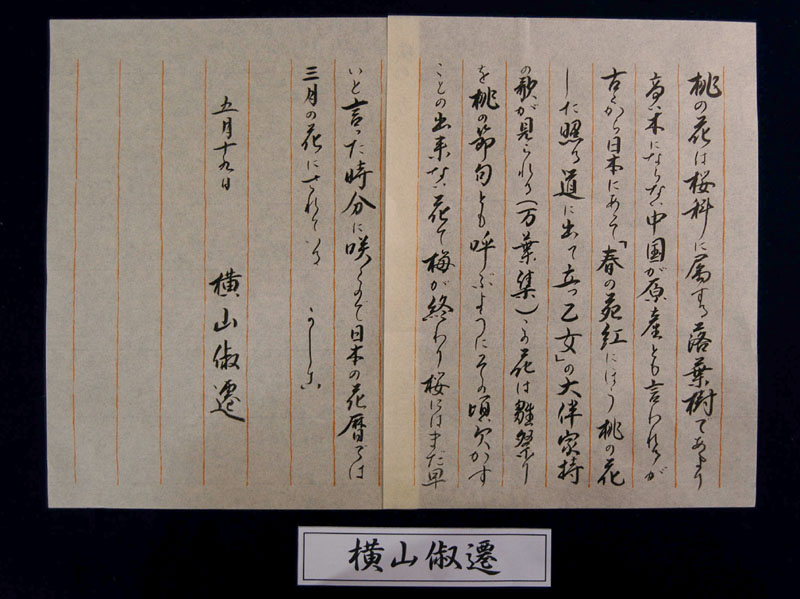 桃の花は桜科に属する落葉樹であまり
高い木にならない中国が原産とも言われるが
古くから日本にあって「春の苑紅にほう桃の花
した照る道に出て立つ乙女」の大伴家持
の歌が見られる(万葉集)この花は雛祭り
を桃の節句とも呼ぶようにその頃欠かす
ことの出来ない花で梅が終わり桜にはまだ早
いと言った時分に咲くので日本の花暦では
三月の花にされている かしこ
五月十九日
横山俶遷
横山俶遷